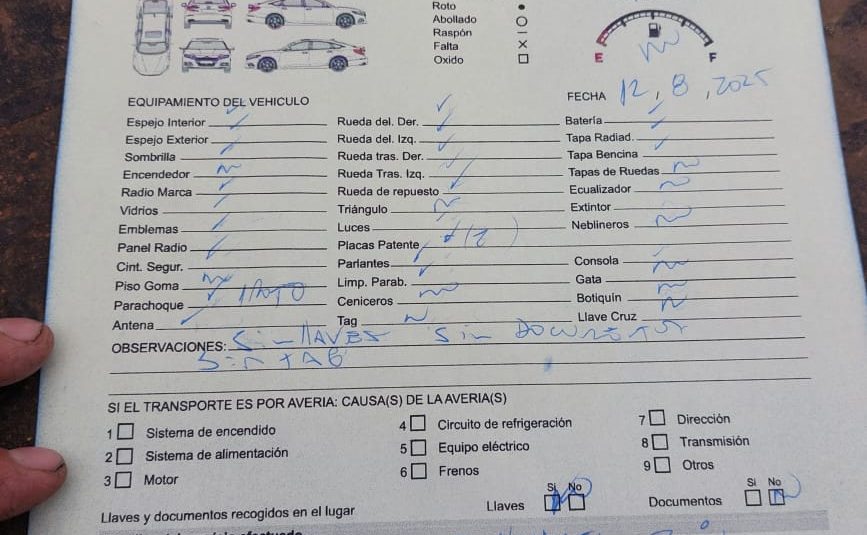 Roto ●
Abollado ○
Raspón |
Falta X
Oxido □
E F
EQUIPAMIENTO DEL VEHICULO
FECHA 12, 8, 2025
Espejo Interior ✓ Rueda del. Der. ✓ Batería ✓
Espejo Exterior ✓ Rueda del. Izq. ✓ Tapa Radiad. ✓
Sombrilla ✓ Rueda tras. Der. ✓ Tapa Bencina ✓
Encendedor Rueda Tras. Izq. ✓ Tapas de Ruedas
Radio Marca ✓ Rueda de repuesto ✓ Ecualizador
Vidrios ✓ Triángulo Extintor
Emblemas ✓ Luces Neblineros
Panel Radio ✓ Placas Patente ✓ (2)
Cint. Segur. ✓ Parlantes ✓ Consola ✓
Piso Goma Limp. Parab. ✓ Gata
Parachoque ✓ ROTO Ceniceros Botiquín
Antena ✓ Tag Llave Cruz
OBSERVACIONES: Sin llAVES Sin DOCUMENTOS
Sin TAG
SI EL TRANSPORTE ES POR AVERIA: CAUSA(S) DE LA AVERIA(S)
1 □ Sistema de encendido 4 □ Circuito de refrigeración 7 □ Dirección
2 □ Sistema de alimentación 5 □ Equipo eléctrico 8 □ Transmisión
3 □ Motor 6 □ Frenos 9 □ Otros
Llaves y documentos recogidos en el lugar Llaves Si No Documentos Si No